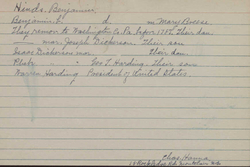 Hinds, Benjamin,
Benjamin, d m Mary Breese
They remov to Washington Co. Pa. befor 1786 Their dau
mar. Joseph Dickerson. Their son
Isaac Dickerson mar Their dau.
Phebe " Geo T. Harding. Their son
Warren Harding President of United States.
Chas. Hanna